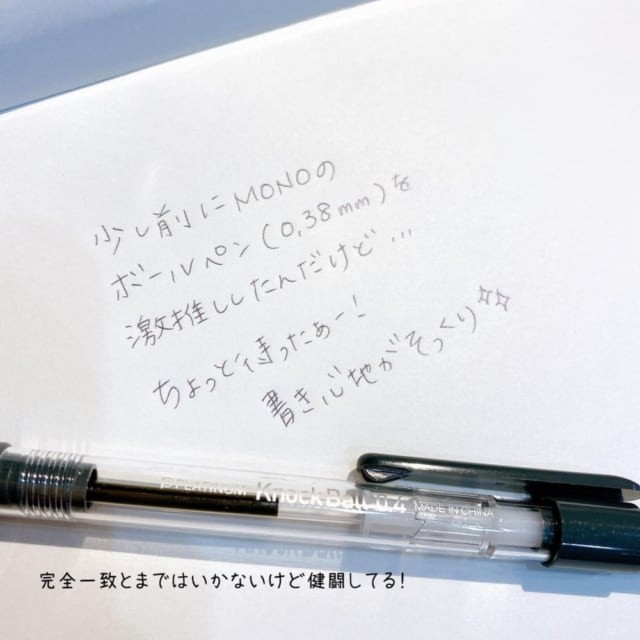 少し前にMONOの
ボールペン(0.38mm)を
激推ししたんだけど…
ちょっと待ったぁー!
書き心地がそっくり☆☆
Knock Ball 0.4
MADE IN CHINA
完全一致とまではいかないけど健闘してる!